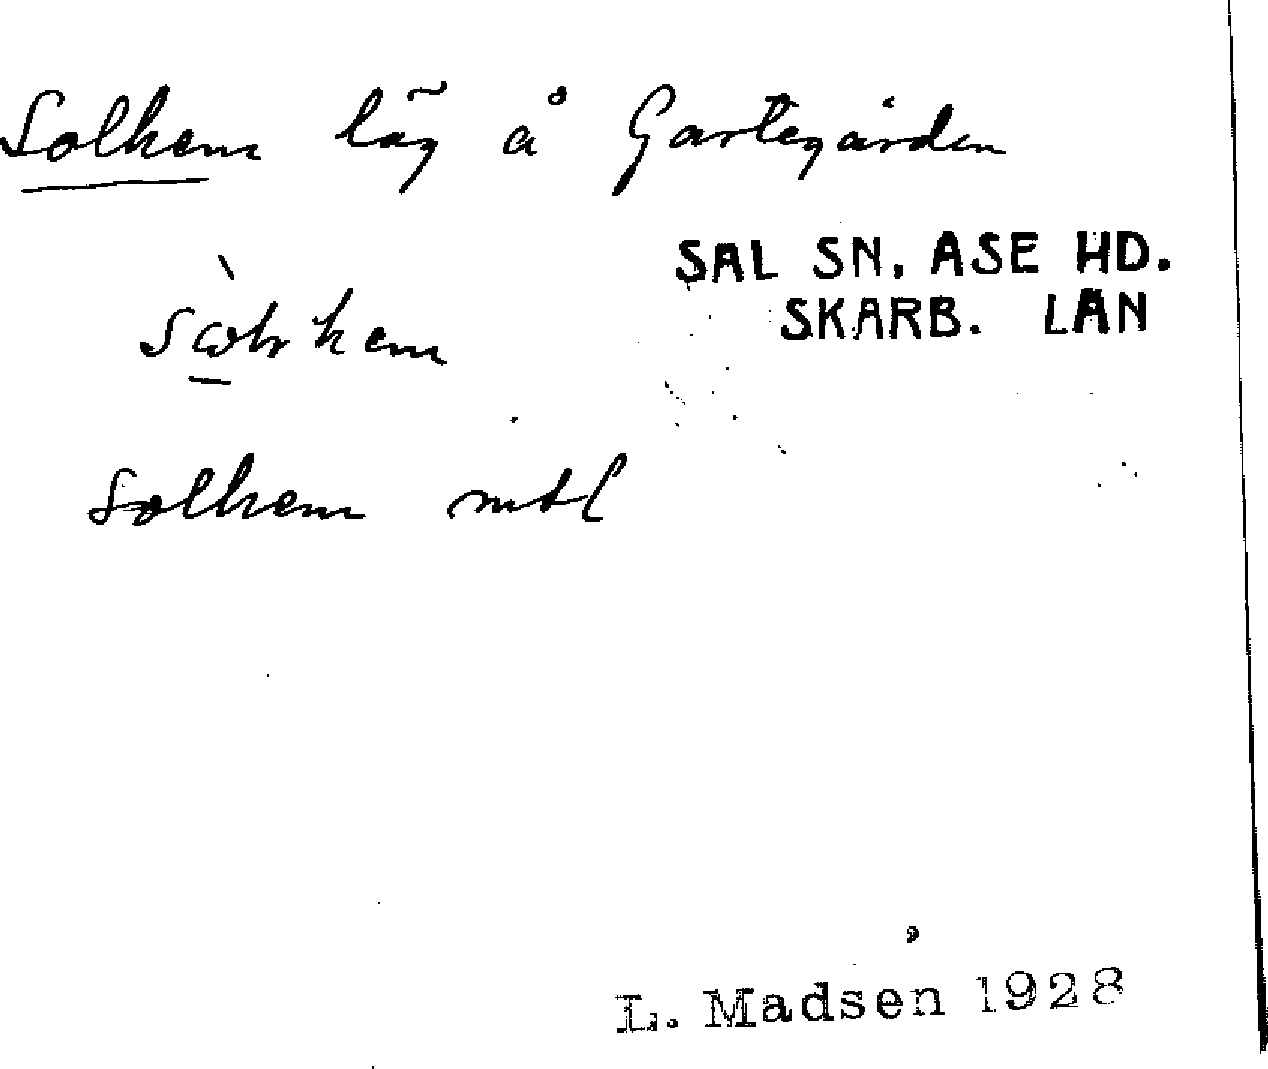 Solhem läg å Gartegården
SAL SN. ÅSE HD.
SKARB. LÄN
Solhem mtl
L. Madsen 1928